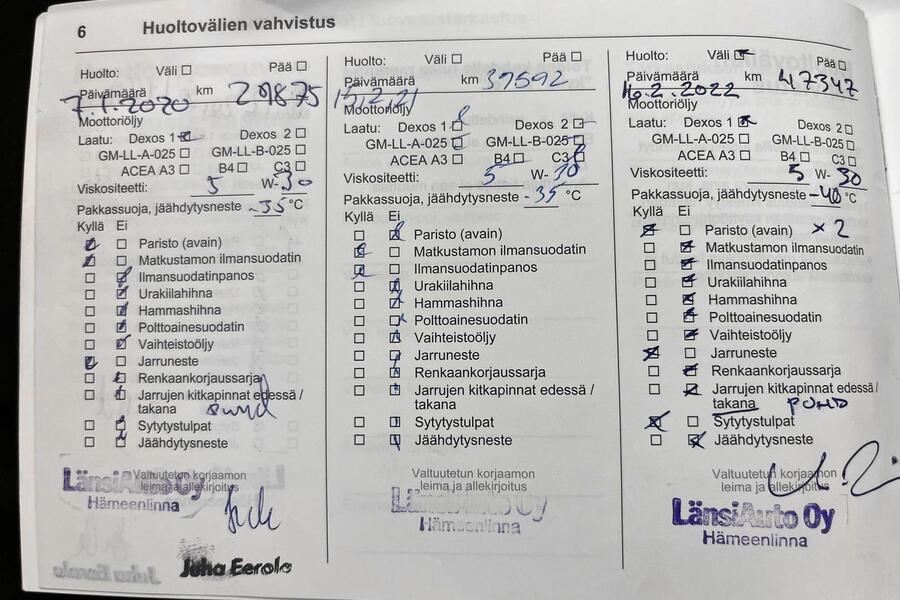 6 Huoltovälien vahvistus
Huolto: Väli Pää
Päivämäärä km 29875
7.1.2020
Moottoriöljy
Laatu: Dexos 1 Dexos 2
GM-LL-A-025 GM-LL-B-025
ACEA A3 B4 C3
Viskositeetti: 5 W-30
Pakkassuoja, jäähdytysneste -35 °C
Kyllä Ei
Paristo (avain)
Matkustamon ilmansuodatin
Ilmansuodatinpanos
Urakiilahihna
Hammashihna
Polttoainesuodatin
Vaihteistoöljy
Jarruneste
Renkaankorjaussarja
Jarrujen kitkapinnat edessä /
takana
Sytytystulpat
Jäähdytysneste
Valtuutetun korjaamon
leima ja allekirjoitus
LänsiAuto Oy
Hämeenlinna
Juha Eerola
Huolto: Väli Pää
Päivämäärä km 37592
15.2.21
Moottoriöljy
Laatu: Dexos 1 Dexos 2
GM-LL-A-025 GM-LL-B-025
ACEA A3 B4 C3
Viskositeetti: 5 W-30
Pakkassuoja, jäähdytysneste -35 °C
Kyllä Ei
Paristo (avain)
Matkustamon ilmansuodatin
Ilmansuodatinpanos
Urakiilahihna
Hammashihna
Polttoainesuodatin
Vaihteistoöljy
Jarruneste
Renkaankorjaussarja
Jarrujen kitkapinnat edessä /
takana
Sytytystulpat
Jäähdytysneste
Valtuutetun korjaamon
leima ja allekirjoitus
LänsiAuto Oy
Hämeenlinna
Huolto: Väli Pää
Päivämäärä km 47347
16.2.2022
Moottoriöljy
Laatu: Dexos 1 Dexos 2
GM-LL-A-025 GM-LL-B-025
ACEA A3 B4 C3
Viskositeetti: 5 W-30
Pakkassuoja, jäähdytysneste -40 °C
Kyllä Ei
Paristo (avain) x 2
Matkustamon ilmansuodatin
Ilmansuodatinpanos
Urakiilahihna
Hammashihna
Polttoainesuodatin
Vaihteistoöljy
Jarruneste
Renkaankorjaussarja
Jarrujen kitkapinnat edessä /
takana PUHD
Sytytystulpat
Jäähdytysneste
Valtuutetun korjaamon
leima ja allekirjoitus
LänsiAuto Oy
Hämeenlinna